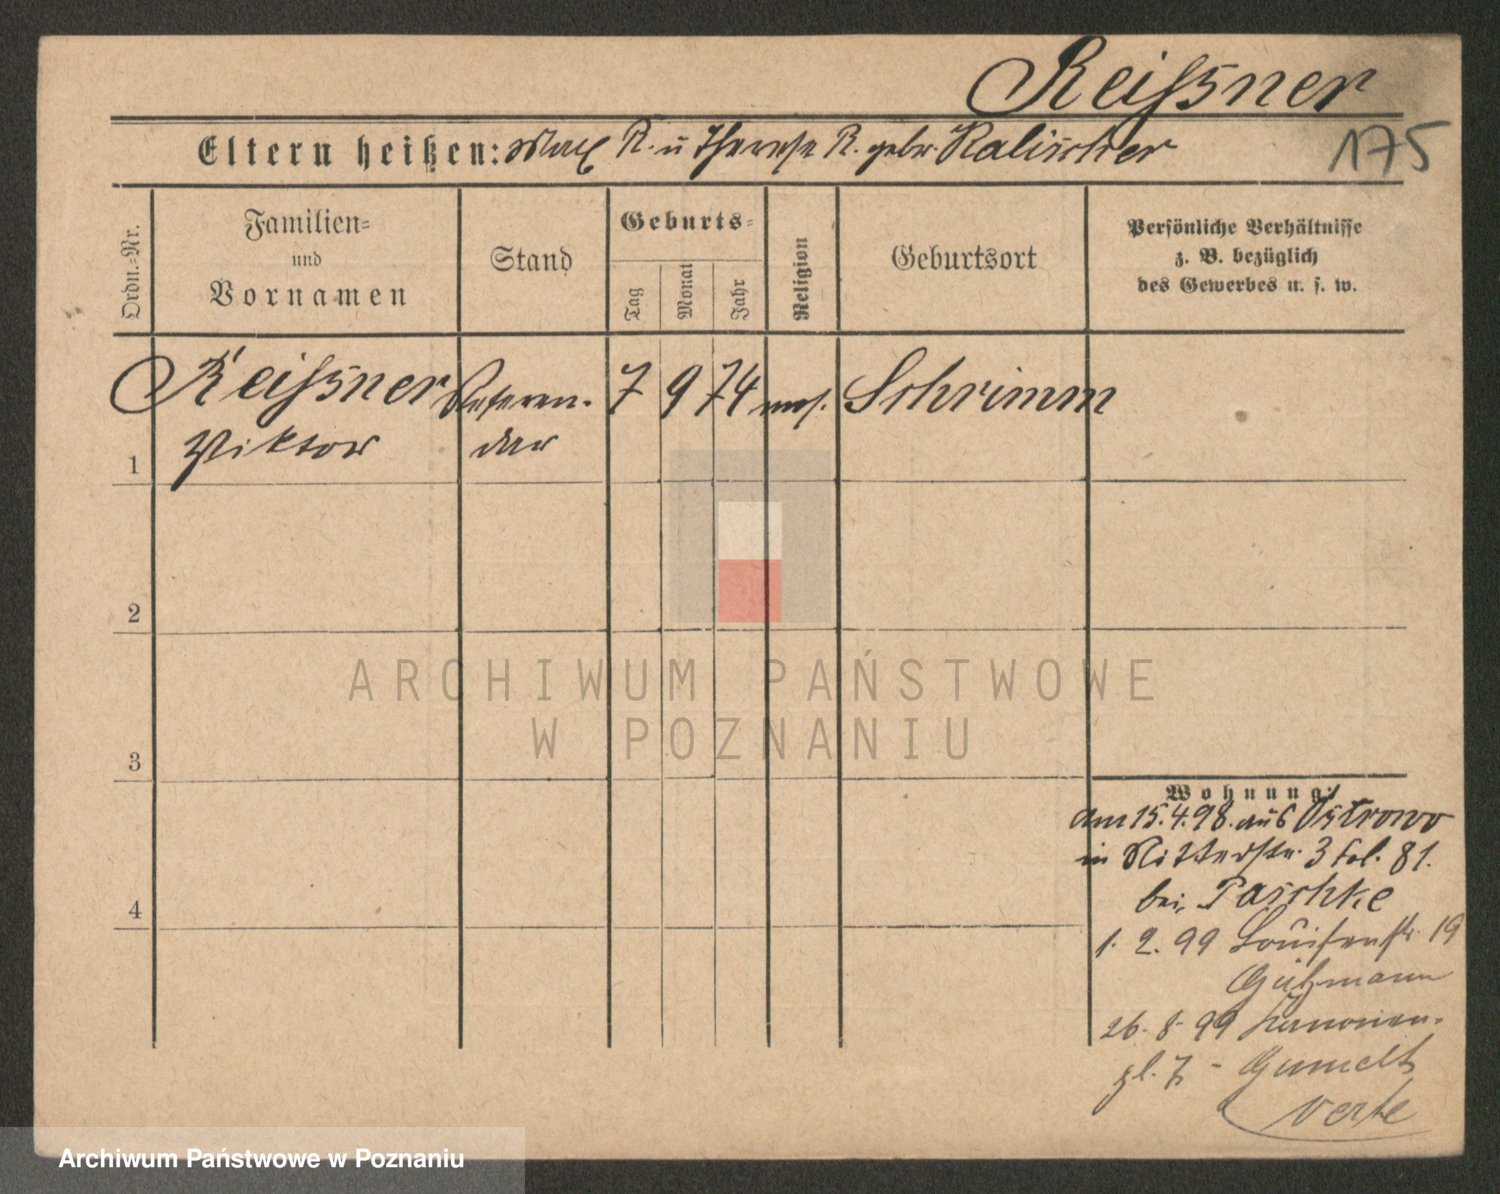 Reiſsner
175
Eltern heißen: Max R. u Therese R. gebr. Kalischer
Ordn.-Nr.
Familien-
und
Vornamen
Stand
Geburts-
Tag
Monat
Jahr
Religion
Geburtsort
Persönliche Verhältnisse
z. B. bezüglich
des Gewerbes u. s. w.
Reiſsner Referen- 7 9 74 mos. Schrimm
1 Viktor dar
2
ARCHIWUM PAŃSTWOWE
W POZNANIU
3
Wohnung:
am 15.4.98. aus Ostrowo
in Ritterstr. 3 fol. 81.
bei Paschke
1. 2. 99 Louisenstr. 19
4
Gutzmann
26. 8. 99 Kanonen-
pl. 7 -
verte
Archiwum Państwowe w Poznaniu